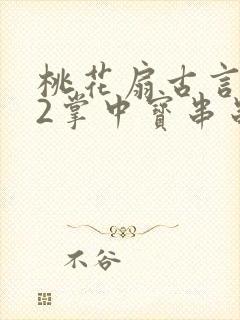 桃花扇古言
2掌中寶串
不谷